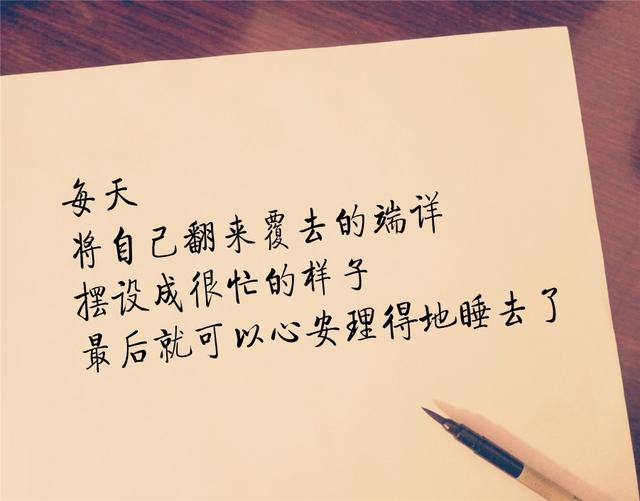 每天
将自己翻来覆去的端详
摆设成很忙的样子
最后就可以心安理得地睡去了